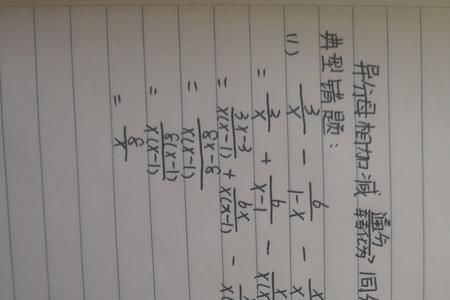 异分母相加减 通分 转化为 同分
典型错题:
(1) 3/x - 6/(1-x) -
= 3/x + 6/(x-1) -
= (3x-3)/(x(x-1)) + 6x/(x(x-1)) -
= (8x-8)/(x(x-1))
= 8(x-1)/(x(x-1))
= 8/x